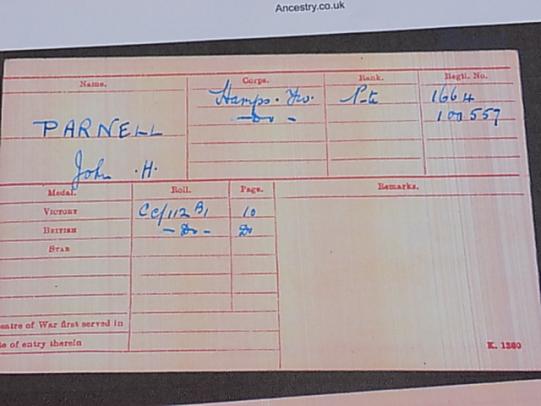 Ancestry.co.uk
Name. Corps. Rank. Regtl. No.
Hamps. Yeo. Pte 1664
PARNELL —Do— 100557
John .H.
Medal. Roll. Page. Remarks.
VICTORY CC/112 B1 10
BRITISH —Do— Do
STAR
eatre of War first served in
te of entry therein
K. 1380